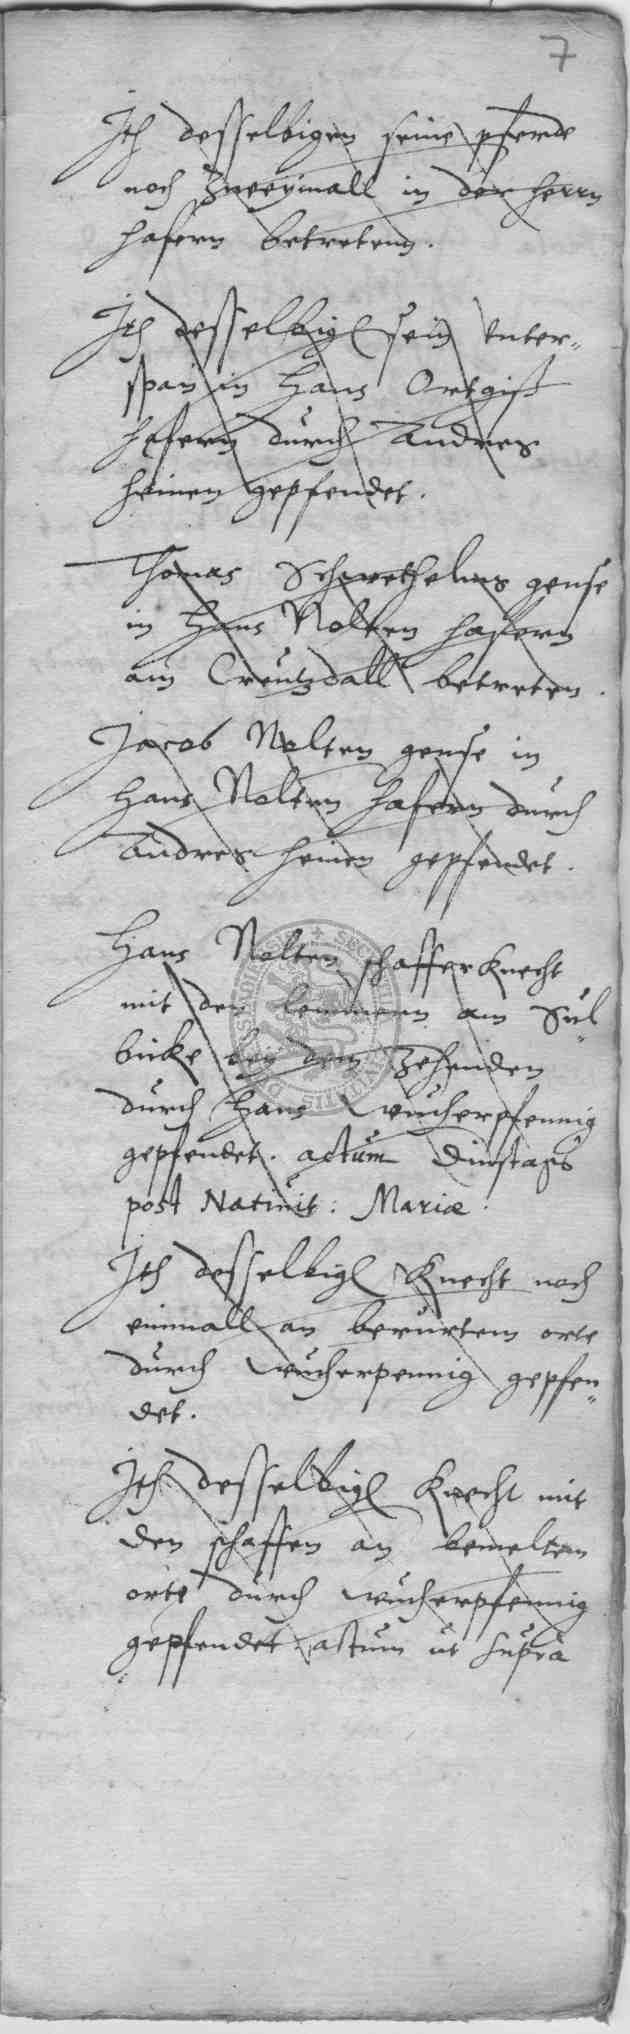 7
Ith desselbigen seine pferde
noch zweymall in der herrn
hafern betretenn.
Ith desselbig sein vnter„
span in Hans Ortgiß
hafern durch Andres
heinen gepfendet.
Thomas Schwethelms gense
in Hans Nolten hafern
am Creutzdall betreten.
Jacob Nolten gense in
Hans Nolten hafern durch
Andres heinen gepfendet.
Hans Nolten schafferknecht
mit den lemmern am Sül„
bicke bey dem zehenden
durch Hans wucherpfennig
gepfendet. actum Dinstags
post Natiuit: Mariæ.
Ith desselbig Knecht noch
einmall an berürtem orte
durch wucherpennig gepfen„
det.
Ith desselbig Knecht mit
den schaffen an bemeltem
orte durch wucherpfennig
gepfendet. actum ut supra